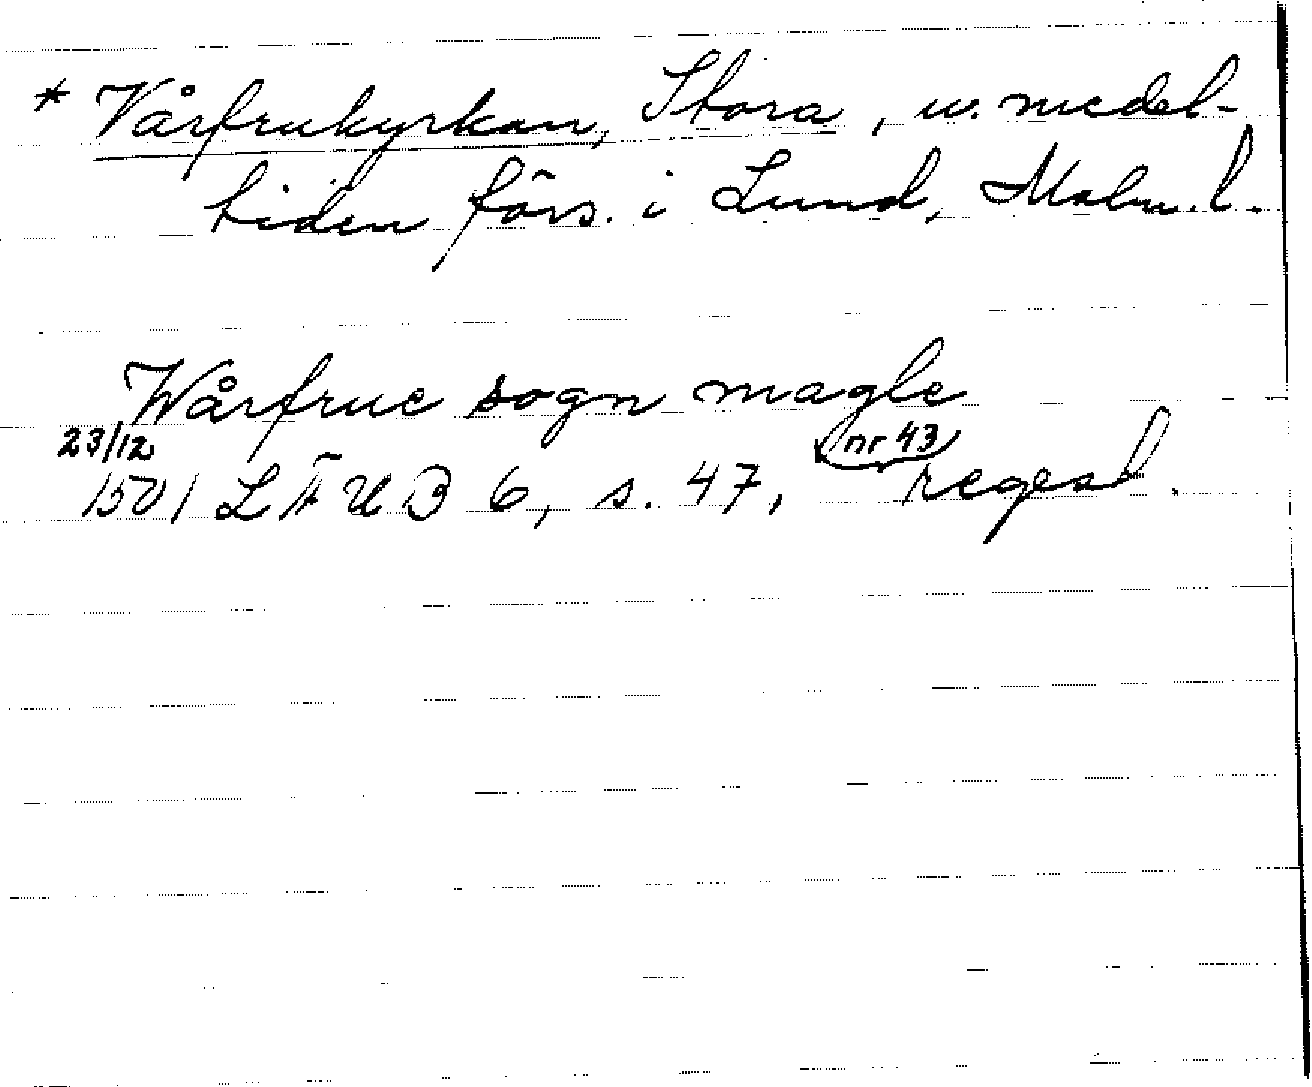 * Vårfrukyrkan, Stora, u. medel-
tiden förs. i Lund, Malm. l.
Wårfrue sogn magle
23/12 nr 43
1501 LÄUB 6, s. 47, regest.